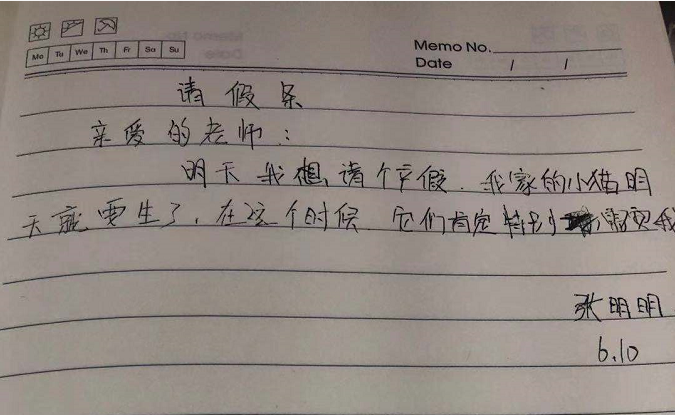 Mo Tu We Th Fr Sa Su
Memo No.
Date / /
请假条
亲爱的老师：
明天我想请个产假.我家的小猫明
天就要生了,在这个时候 它们肯定特别需要我
张明明
6.10